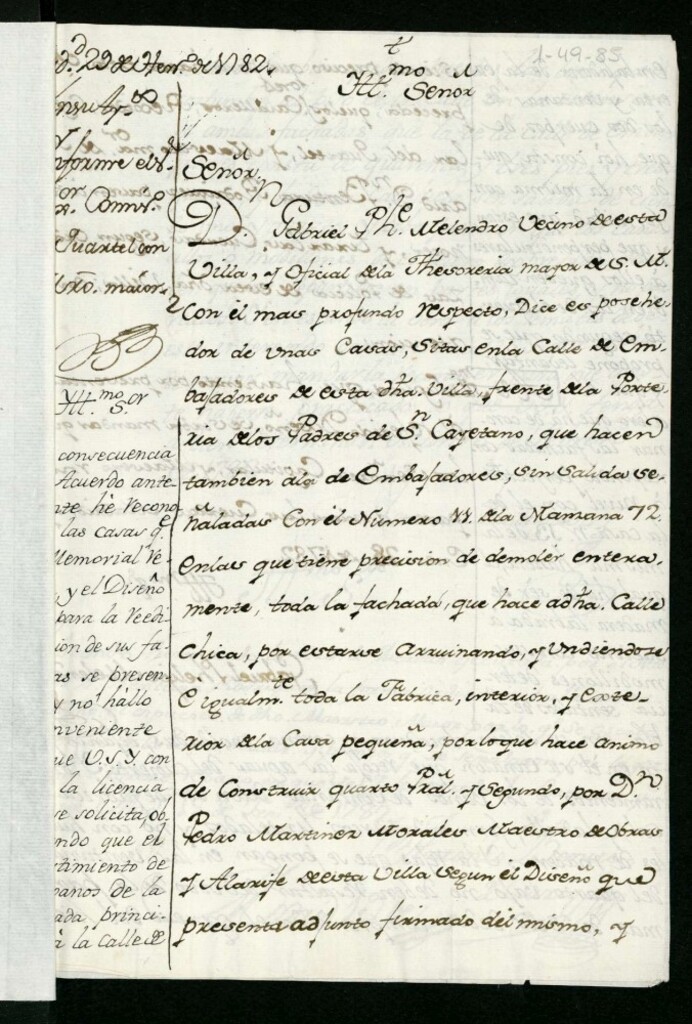 1-49-85
d.ᵈ 29 de Hen.º de 1782
Ill.ᵐᵒ Señor
Señor
D.ⁿ Gabriel Ph.ᵉ Melendro Vecino de esta
Villa, y Oficial de la Thesoreria mayor de S. M.
Con el mas profundo respecto, Dice es posehe-
dor de unas Casas, sitas en la Calle de Em-
bajadores de esta dha. Villa, frente de la Porte-
ria de los Padres de S.ⁿ Cayetano, que hacen
tambien ala de Embajadores, sin Salida se-
ñaladas Con el Numero 11. de la Manzana 72.
en las que tiene precision de demoler entera-
mente, toda la fachada, que hace a dha. Calle
Chica, por estarse Arruinando, y Undiendose
e igualm.ᵗᵉ toda la Fabrica, interior, y exte-
rior de la Casa pequeña, por lo que hace animo
de Construir quarto Pral. y Segundo, por D.ⁿ
Pedro Martinez Morales Maestro de Obras
y Alarife de esta Villa segun el Diseño que
presenta adjunto firmado del mismo, y
nforme el S.ᵒʳ
Comis.º
Quartel con
maior
Ill.ᵐᵒ S.ᵒʳ
consecuencia
Acuerdo ante-
te hè recono
las casas q.ᵉ
Memorial re-
, y el Diseño
para la reedi
ion de sus fa-
as se presen
y no hallo
nveniente
ue V.S.Y. con
la licencia
se solicita, ob-
ndo que el
timiento de
anos de la
ada princi-
à la Calle de